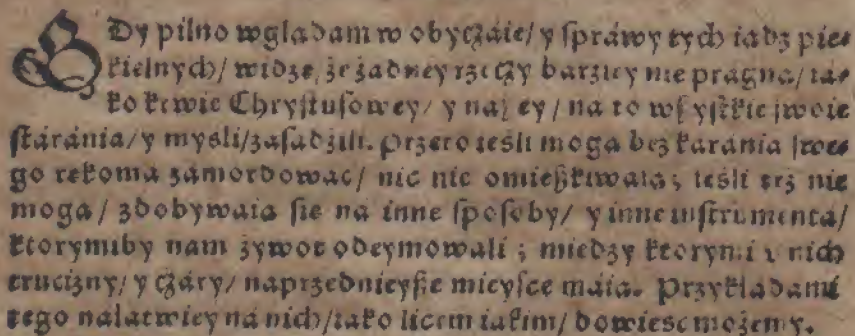 GDy pilno wglądam w obyczáie/ y spráwy tych iądz pie-
kielnych/ widzę, że żadney rzeczy bárziey nie prágną/ iá-
ko krwie Chrystusowey/ y nászey/ ná to wszystkie swoie
stáránia/ y myśli/ zásadzili. Przeto ieśli mogą bez karánia swe-
go rękomá zámordowáć/ nic nie omieszkiwáią; ieśli też nie
mogą/ zdobywáią się ná inne sposoby/ y inne instrumentá/
ktorymiby nam żywot odeymowáli; między ktorymi v nich
trucizny/ y czáry/ naprzednieysze mieysce máią. Przykłádámi
tego nałátwiey ná nich/ iáko licem iákim/ dowieść możemy.